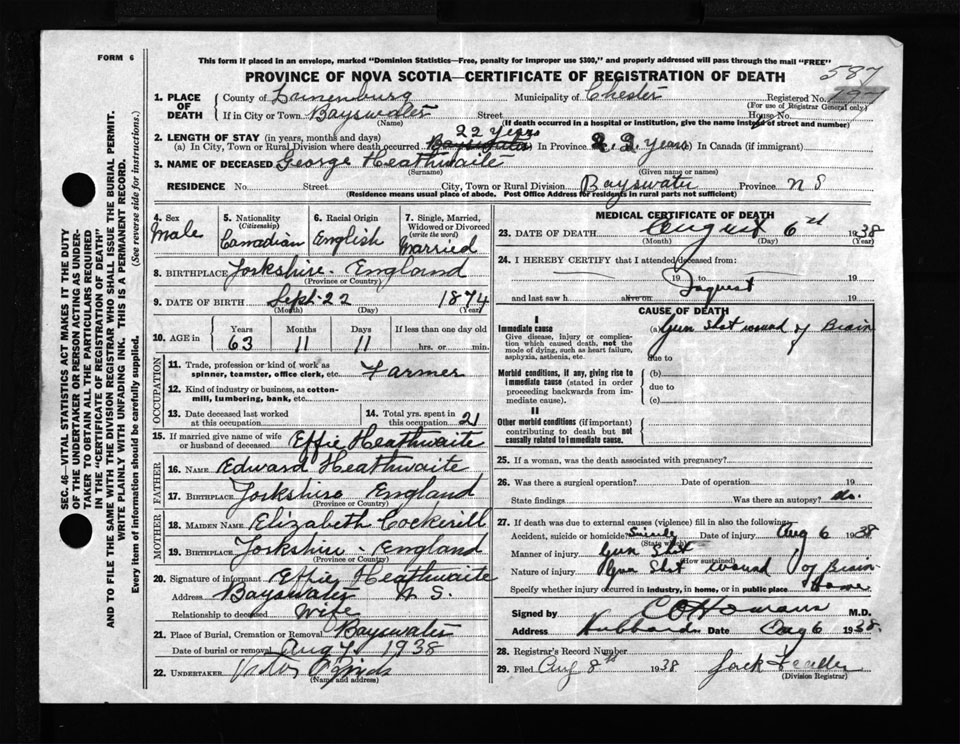 FORM 6
This form if placed in an envelope, marked "Dominion Statistics—Free, penalty for improper use $300," and properly addressed will pass through the mail "FREE"
PROVINCE OF NOVA SCOTIA—CERTIFICATE OF REGISTRATION OF DEATH
587
197
1. PLACE OF DEATH
County of Lunenburg Municipality of Chester Registered No.
(For use of Registrar General only)
If in City or Town Bayswater Street House No.
(Name) (If death occurred in a hospital or institution, give the name instead of street and number)
2. LENGTH OF STAY (in years, months and days) 22 Years
(a) In City, Town or Rural Division where death occurred Bayswater In Province 22 Years In Canada (if immigrant)
3. NAME OF DECEASED George Heathwaite
(Surname) (Given name or names)
RESIDENCE No. Street City, Town or Rural Division Bayswater Province N S
(Residence means usual place of abode. Post Office Address for residents in rural parts not sufficient)
4. Sex Male
5. Nationality (Citizenship) Canadian
6. Racial Origin English
7. Single, Married, Widowed or Divorced (write the word) Married
8. BIRTHPLACE Yorkshire - England
(Province or Country)
9. DATE OF BIRTH Sept 22 1874
(Month) (Day) (Year)
10. AGE in Years 63 Months 11 Days 11 If less than one day old hrs. or min.
OCCUPATION
11. Trade, profession or kind of work as spinner, teamster, office clerk, etc. Farmer
12. Kind of industry or business, as cotton-mill, lumbering, bank, etc.
13. Date deceased last worked at this occupation
14. Total yrs. spent in this occupation 21
15. If married give name of wife or husband of deceased Effie Heathwaite
FATHER
16. NAME Edward Heathwaite
17. BIRTHPLACE Yorkshire England
(Province or Country)
MOTHER
18. MAIDEN NAME Elizabeth Cockerill
19. BIRTHPLACE Yorkshire - England
(Province or Country)
20. Signature of informant Effie Heathwaite
Address Bayswater N. S.
Relationship to deceased Wife
21. Place of Burial, Cremation or Removal Bayswater
Date of burial or removal Aug 7, 1938
22. UNDERTAKER
(Name and address)
MEDICAL CERTIFICATE OF DEATH
23. DATE OF DEATH August 6 1938
(Month) (Day) (Year)
24. I HEREBY CERTIFY that I attended deceased from:
19 to 19
Inquest
and last saw h alive on 19
CAUSE OF DEATH
I
Immediate cause
Give disease, injury or complication which caused death, not the mode of dying, such as heart failure, asphyxia, asthenia, etc.
(a) Gun Shot wound of Brain
due to
Morbid conditions, if any, giving rise to immediate cause (stated in order proceeding backwards from immediate cause).
(b)
due to
(c)
II
Other morbid conditions (if important) contributing to death but not causally related to immediate cause.
25. If a woman, was the death associated with pregnancy?
26. Was there a surgical operation? Date of operation 19
State findings Was there an autopsy?
27. If death was due to external causes (violence) fill in also the following:
Accident, suicide or homicide? Suicide Date of injury Aug 6 1938
(State which)
Manner of injury Gun Shot
(How sustained)
Nature of injury Gun Shot wound of Brain
Specify whether injury occurred in industry, in home, or in public place Home
Signed by C O Homans M.D.
Address Hubbards Date Aug 6 1938
28. Registrar's Record Number
29. Filed Aug 8th 1938 Jack
(Division Registrar)
SEC. 46—VITAL STATISTICS ACT MAKES IT THE DUTY
OF THE UNDERTAKER OR PERSON ACTING AS UNDER-
TAKER TO OBTAIN ALL THE PARTICULARS REQUIRED
IN THE "CERTIFICATE OF REGISTRATION OF DEATH"
AND TO FILE THE SAME WITH THE DIVISION REGISTRAR WHO SHALL ISSUE THE BURIAL PERMIT.
WRITE PLAINLY WITH UNFADING INK. THIS IS A PERMANENT RECORD.
Every item of information should be carefully supplied. (See reverse side for instructions.)